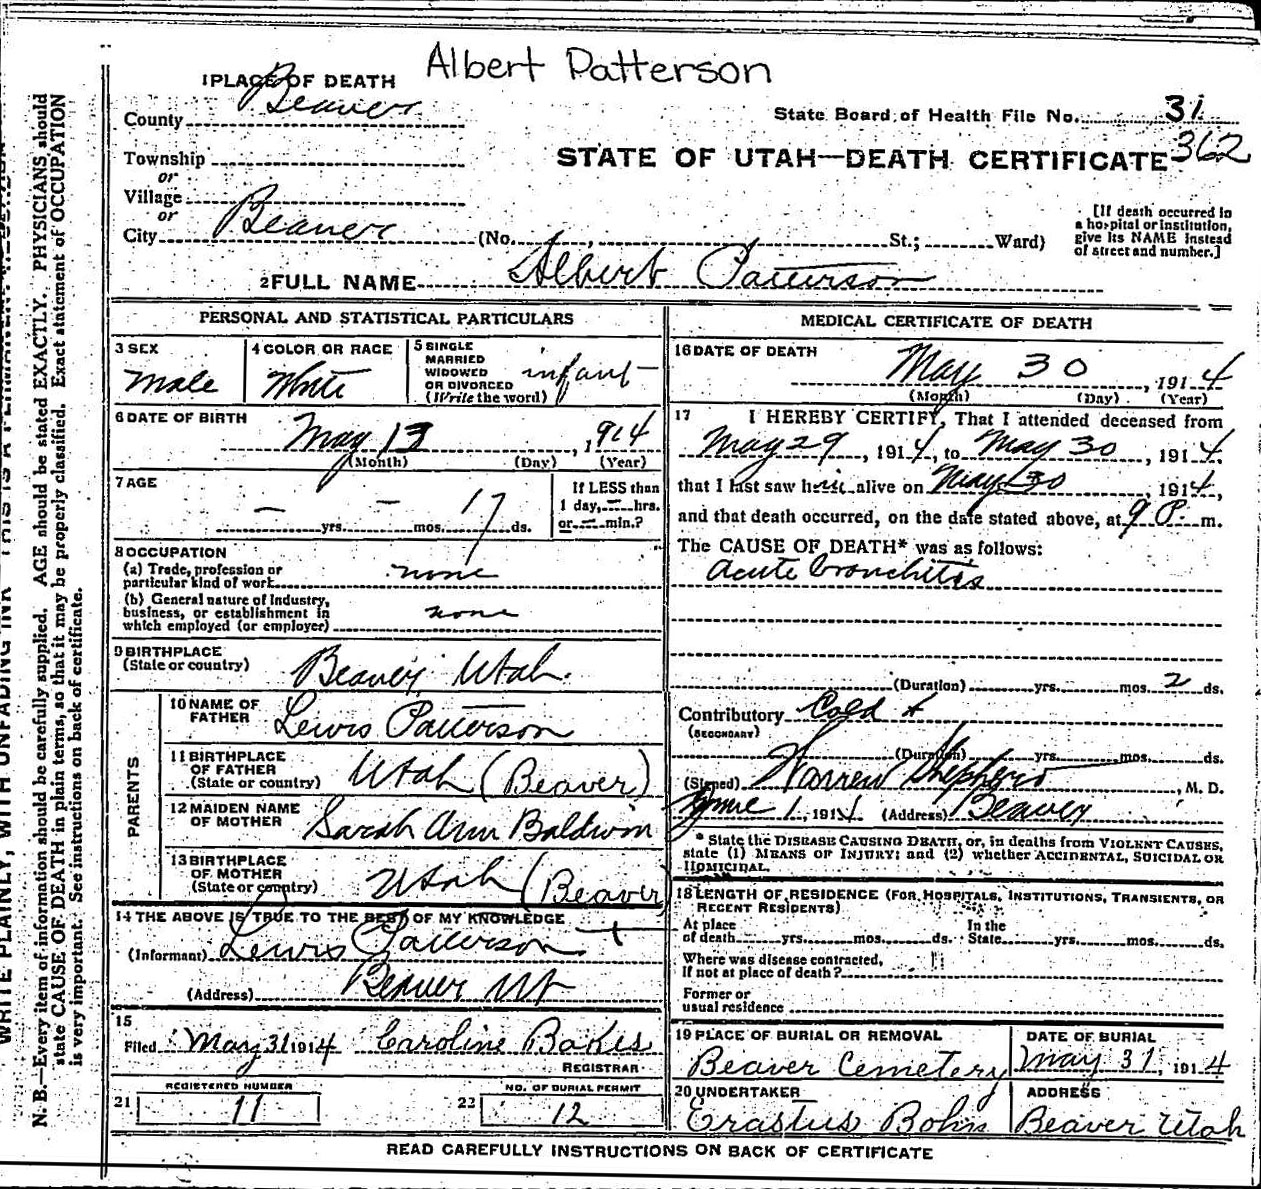 Albert Patterson
1 PLACE OF DEATH
County Beaver
State Board of Health File No. 31
362
STATE OF UTAH—DEATH CERTIFICATE
Township
or
Village
or
City Beaver (No. , St.; Ward)
[If death occurred in a hospital or institution, give its NAME instead of street and number.]
2 FULL NAME Albert Patterson
PERSONAL AND STATISTICAL PARTICULARS
3 SEX Male
4 COLOR OR RACE White
5 SINGLE MARRIED WIDOWED OR DIVORCED (Write the word) infant
6 DATE OF BIRTH
May 13, 1914
(Month) (Day) (Year)
7 AGE
— yrs. — mos. 17 ds.
If LESS than 1 day, — hrs. or — min.?
8 OCCUPATION
(a) Trade, profession or particular kind of work none
(b) General nature of industry, business, or establishment in which employed (or employer) none
9 BIRTHPLACE
(State or country) Beaver, Utah.
PARENTS
10 NAME OF FATHER Lewis Patterson
11 BIRTHPLACE OF FATHER (State or country) Utah (Beaver)
12 MAIDEN NAME OF MOTHER Sarah Ann Baldwin
13 BIRTHPLACE OF MOTHER (State or country) Utah (Beaver)
14 THE ABOVE IS TRUE TO THE BEST OF MY KNOWLEDGE
(Informant) Lewis Patterson
(Address) Beaver Ut
15
Filed May 31 1914 Caroline
REGISTRAR
21 REGISTERED NUMBER 11
22 NO. OF BURIAL PERMIT 12
MEDICAL CERTIFICATE OF DEATH
16 DATE OF DEATH
May 30, 1914
(Month) (Day) (Year)
17 I HEREBY CERTIFY, That I attended deceased from
May 29, 1914, to May 30, 1914,
that I last saw him alive on May 30, 1914,
and that death occurred, on the date stated above, at 9 P. m.
The CAUSE OF DEATH* was as follows:
Acute Bronchitis
(Duration) yrs. mos. 2 ds.
Contributory Cold
(SECONDARY)
(Duration) yrs. mos. ds.
(Signed) Warren Shepherd, M. D.
June 1, 1914 (Address) Beaver
* State the DISEASE CAUSING DEATH, or, in deaths from VIOLENT CAUSES, state (1) MEANS OF INJURY; and (2) whether ACCIDENTAL, SUICIDAL OR HOMICIDAL.
18 LENGTH OF RESIDENCE (FOR HOSPITALS, INSTITUTIONS, TRANSIENTS, OR RECENT RESIDENTS)
At place of death yrs. mos. ds. In the State yrs. mos. ds.
Where was disease contracted, if not at place of death?
Former or usual residence
19 PLACE OF BURIAL OR REMOVAL
Beaver Cemetery
DATE OF BURIAL
May 31, 1914
20 UNDERTAKER
Erastus Bohn
ADDRESS
Beaver Utah
READ CAREFULLY INSTRUCTIONS ON BACK OF CERTIFICATE
N. B.—Every item of information should be carefully supplied. AGE should be stated EXACTLY. PHYSICIANS should
state CAUSE OF DEATH in plain terms, so that it may be properly classified. Exact statement of OCCUPATION
is very important. See instructions on back of certificate.
WRITE PLAINLY, WITH UNFADING INK